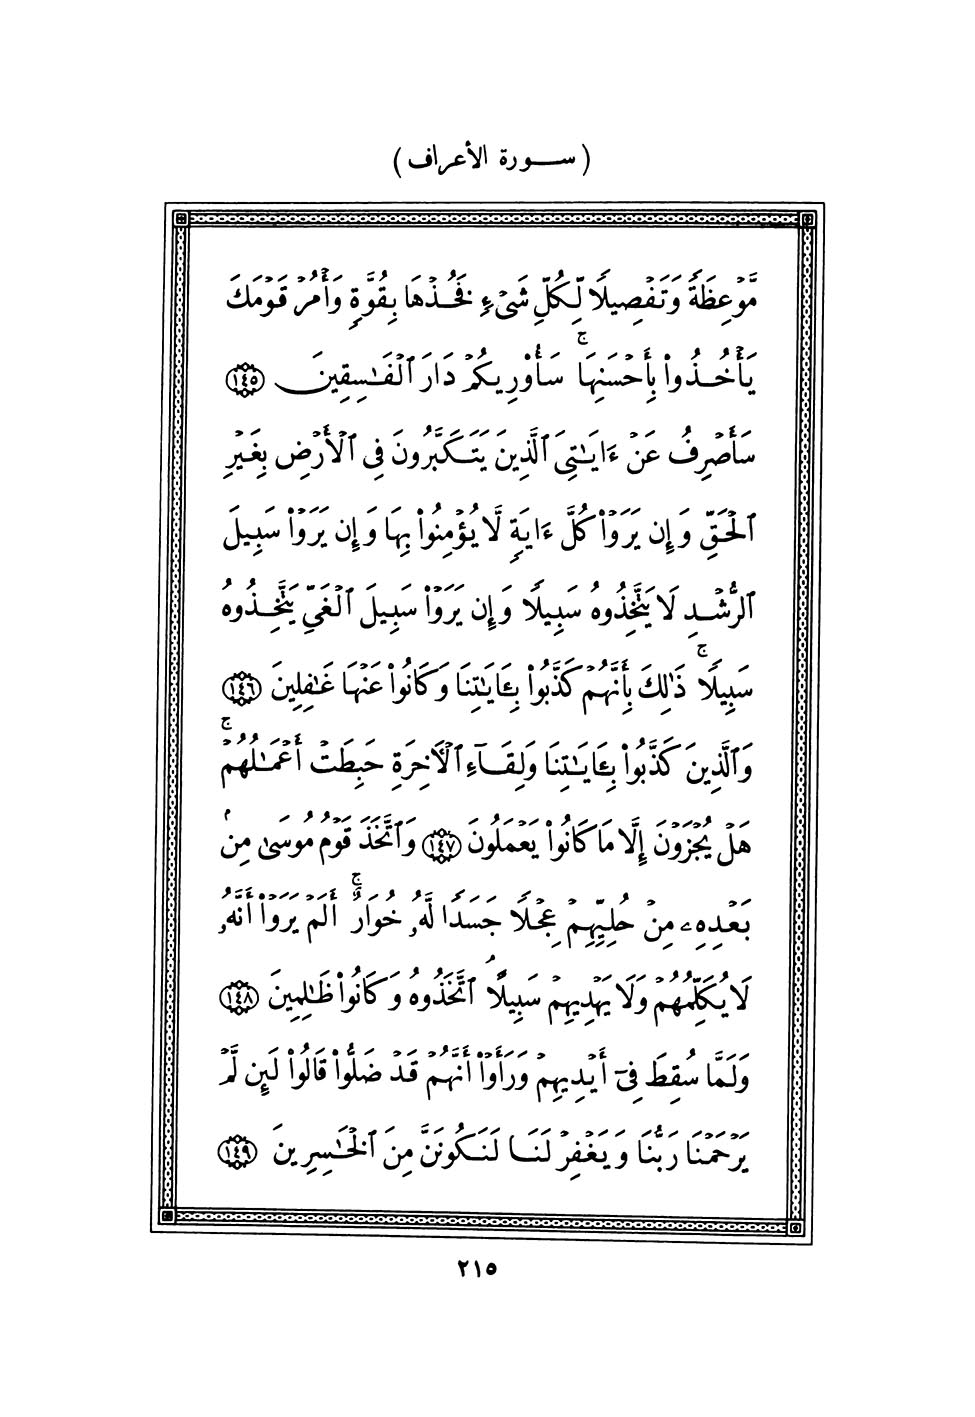 ( ســورة الأعراف )
مَّوْعِظَةً وَتَفْصِيلًا لِّكُلِّ شَىْءٍ فَخُذْهَا بِقُوَّةٍ وَأْمُرْ قَوْمَكَ
يَأْخُذُوا۟ بِأَحْسَنِهَا ۚ سَأُو۟رِيكُمْ دَارَ ٱلْفَـٰسِقِينَ ١٤٥
سَأَصْرِفُ عَنْ ءَايَـٰتِىَ ٱلَّذِينَ يَتَكَبَّرُونَ فِى ٱلْأَرْضِ بِغَيْرِ
ٱلْحَقِّ وَإِن يَرَوْا۟ كُلَّ ءَايَةٍ لَّا يُؤْمِنُوا۟ بِهَا وَإِن يَرَوْا۟ سَبِيلَ
ٱلرُّشْدِ لَا يَتَّخِذُوهُ سَبِيلًا وَإِن يَرَوْا۟ سَبِيلَ ٱلْغَىِّ يَتَّخِذُوهُ
سَبِيلًا ۚ ذَٰلِكَ بِأَنَّهُمْ كَذَّبُوا۟ بِـَٔايَـٰتِنَا وَكَانُوا۟ عَنْهَا غَـٰفِلِينَ ١٤٦
وَٱلَّذِينَ كَذَّبُوا۟ بِـَٔايَـٰتِنَا وَلِقَآءِ ٱلْـَٔاخِرَةِ حَبِطَتْ أَعْمَـٰلُهُمْ ۚ
هَلْ يُجْزَوْنَ إِلَّا مَا كَانُوا۟ يَعْمَلُونَ ١٤٧ وَٱتَّخَذَ قَوْمُ مُوسَىٰ مِنۢ
بَعْدِهِۦ مِنْ حُلِيِّهِمْ عِجْلًا جَسَدًا لَّهُۥ خُوَارٌ ۚ أَلَمْ يَرَوْا۟ أَنَّهُۥ
لَا يُكَلِّمُهُمْ وَلَا يَهْدِيهِمْ سَبِيلًا ۘ ٱتَّخَذُوهُ وَكَانُوا۟ ظَـٰلِمِينَ ١٤٨
وَلَمَّا سُقِطَ فِىٓ أَيْدِيهِمْ وَرَأَوْا۟ أَنَّهُمْ قَدْ ضَلُّوا۟ قَالُوا۟ لَئِن لَّمْ
يَرْحَمْنَا رَبُّنَا وَيَغْفِرْ لَنَا لَنَكُونَنَّ مِنَ ٱلْخَـٰسِرِينَ ١٤٩
٢١٥